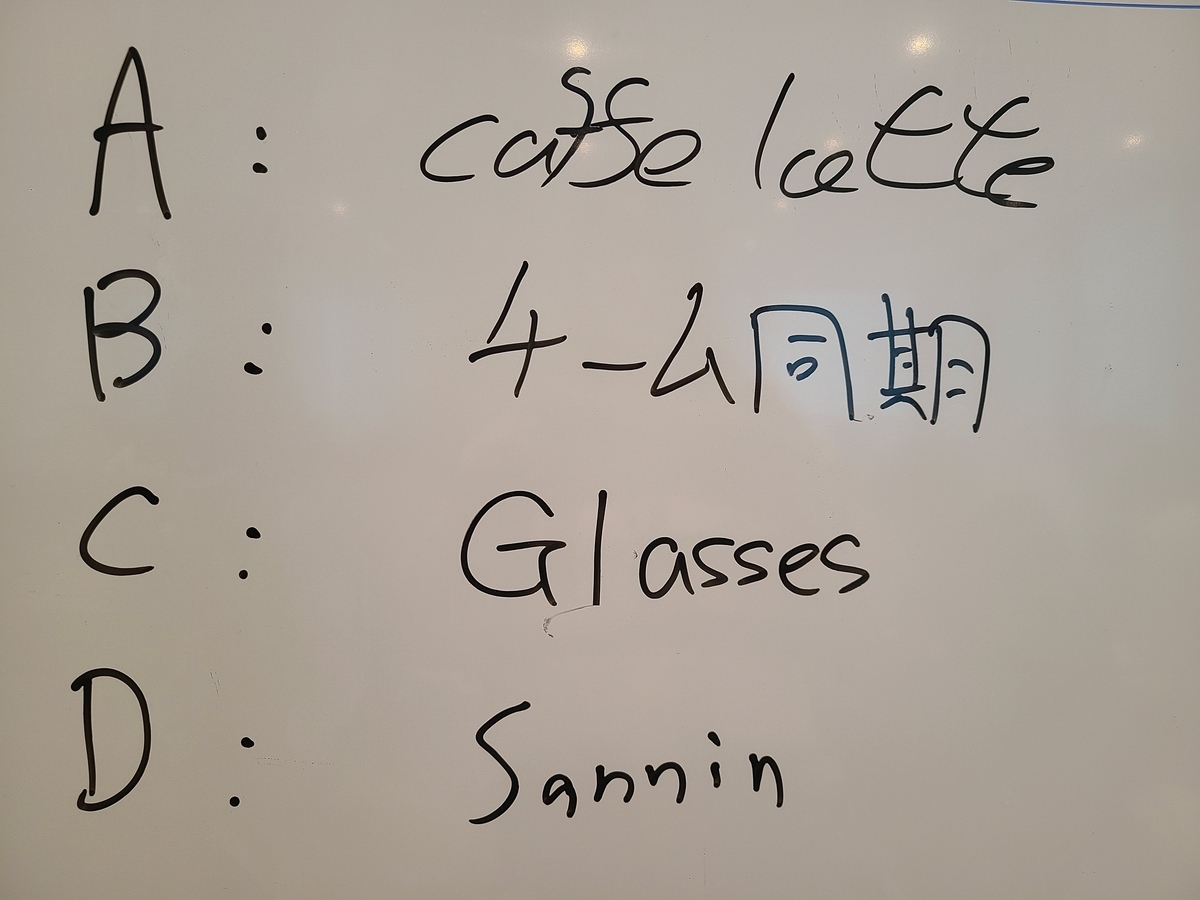 A : caffe latte
B : チーム同期
C : Glasses
D : Sannin